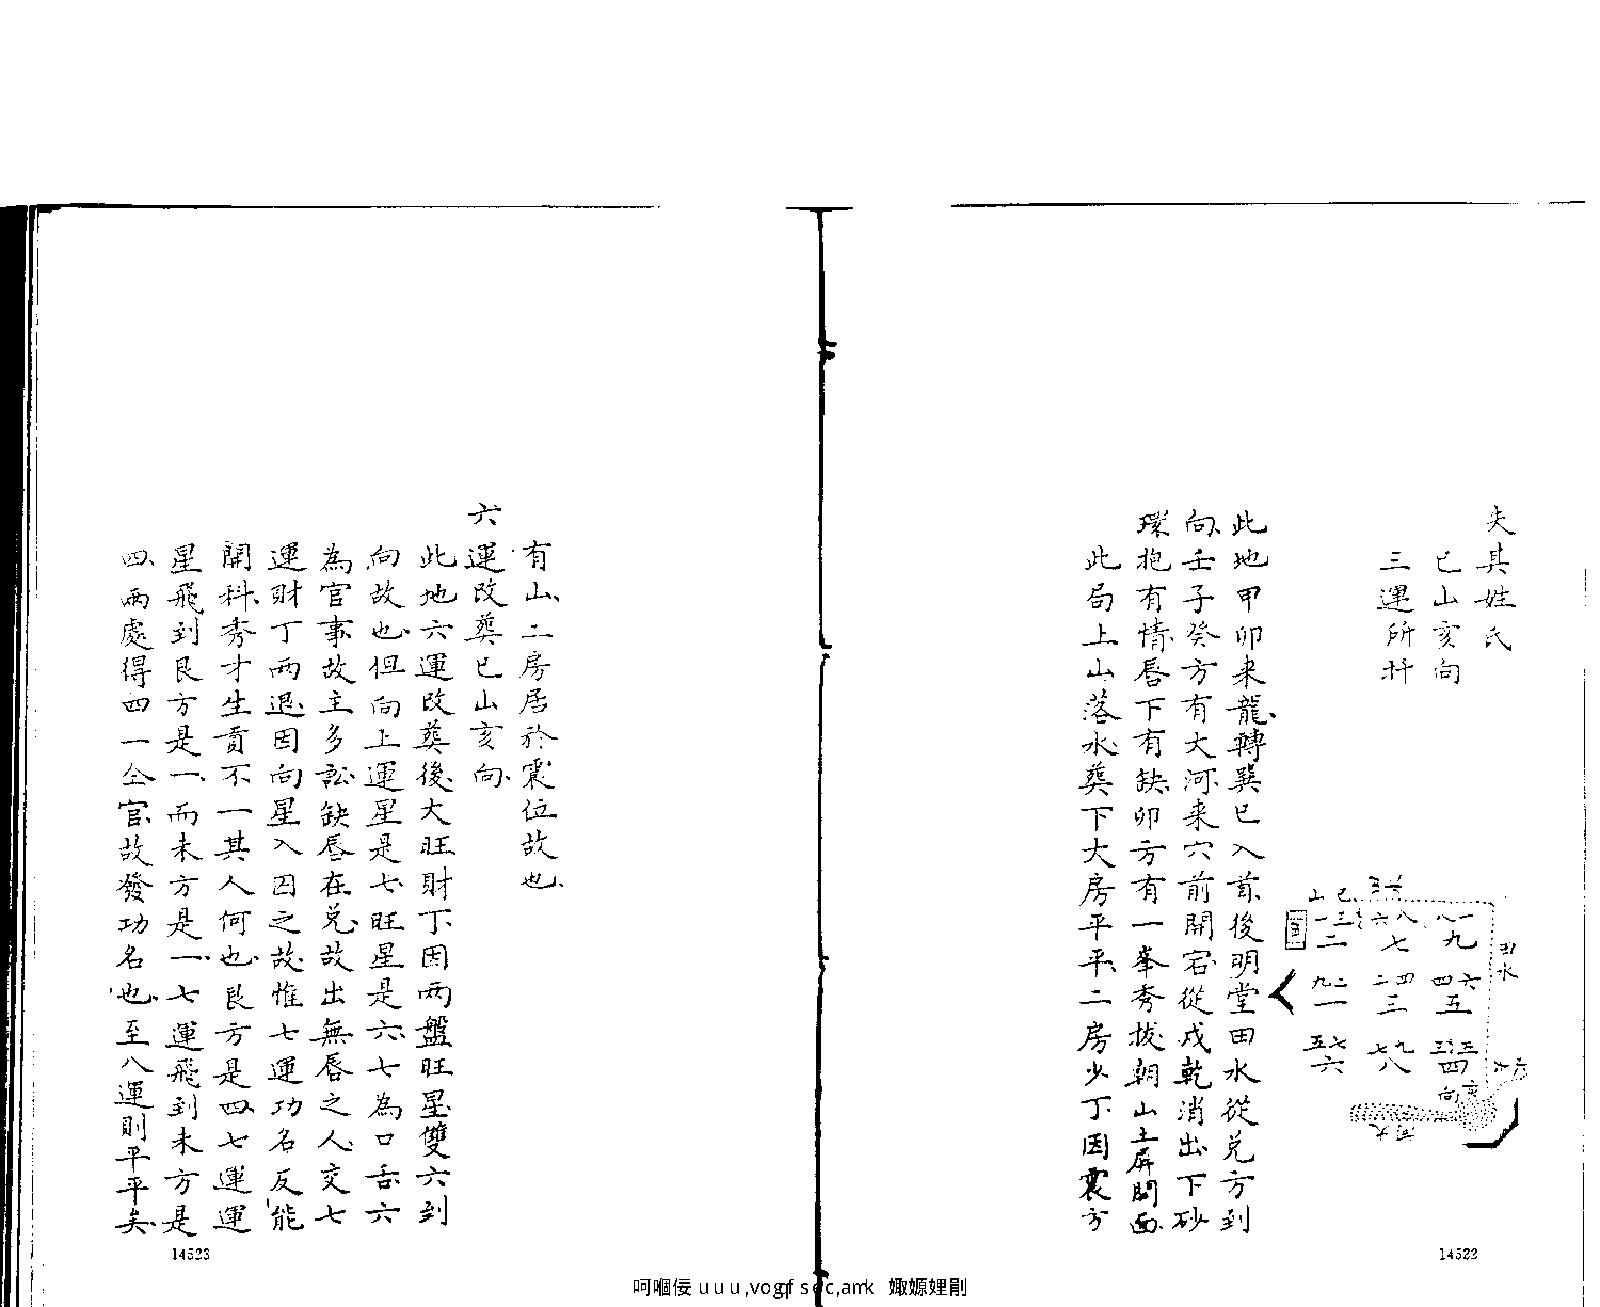 失其姓氏
巳山亥向
三運所扦
山 巳
一三 六八 八一
二 七 九
九二 二四 四六
一 三 五
五七 七九 三三
六 八 四
向 亥
田水
此地甲卯来龍轉巽巳入首後明堂田水從兌方到
向壬子癸方有大河来穴前開宕從戌乾消出下砂
環抱有情唇下有缺卯方有一峯秀拔朝山土屏開面
此局上山落水葬下大房平平二房少丁因震方
14522
有山二房居於震位故也
六運改葬巳山亥向
此地六運改葬後大旺財丁因兩盤旺星雙六到
向故也但向上運星是七旺星是六七為口舌六
為官事故主多訟缺唇在兌故出無唇之人交七
運財丁兩退因向星入囚之故惟七運功名反能
開科秀才生貢不一其人何也艮方是四七運運
星飛到艮方是一而未方是一七運飛到未方是
四兩處得四一仝宮故發功名也至八運則平平矣
14523